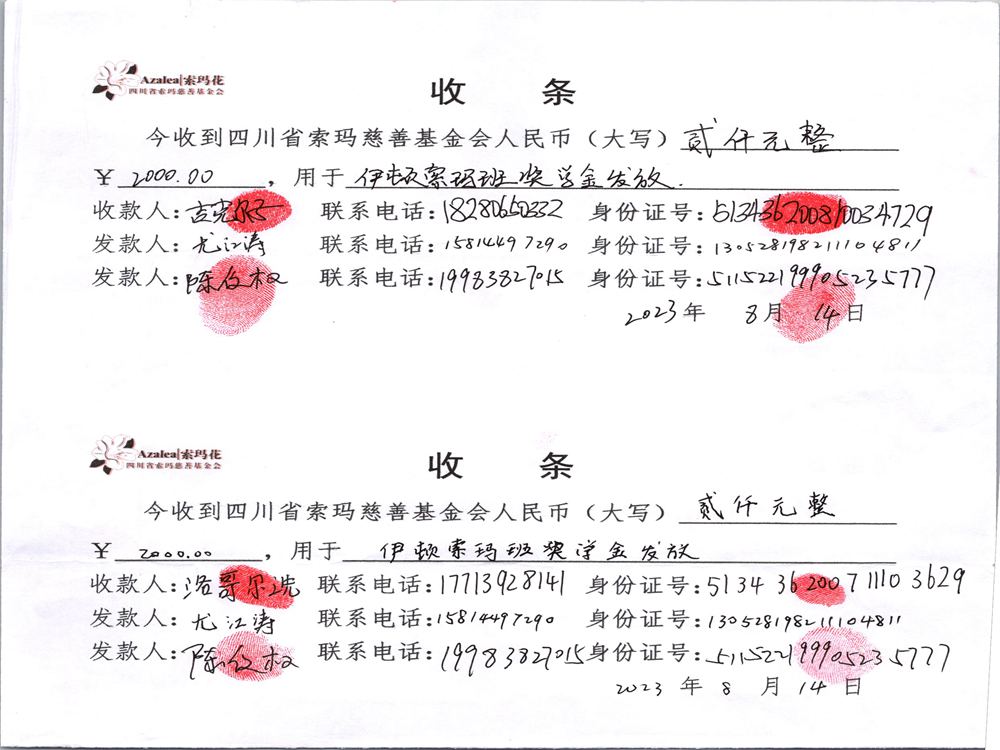 Azalea|索玛花
四川省索玛慈善基金会
收 条
今收到四川省索玛慈善基金会人民币（大写）贰仟元整
¥ 2000.00 ，用于 伊顿索玛班奖学金发放.
收款人：吉克尔子 联系电话：18280650332 身份证号：513436200810034729
发款人：尤江涛 联系电话：15814497290 身份证号：130528198211104811
发款人：陈俊权 联系电话：19983827015 身份证号：511522199905235777
2023 年 8 月 14 日
Azalea|索玛花
四川省索玛慈善基金会
收 条
今收到四川省索玛慈善基金会人民币（大写）贰仟元整
¥ 2000.00 ，用于 伊顿索玛班奖学金发放
收款人：洛哥尔洗 联系电话：17713928141 身份证号：513436200711103629
发款人：尤江涛 联系电话：15814497290 身份证号：130528198211104811
发款人：陈俊权 联系电话：19983827015 身份证号：511522199905235777
2023 年 8 月 14 日